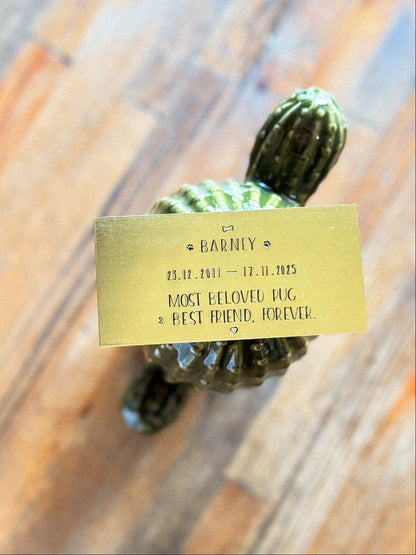 BARNEY
23.12.2011 — 17.11.2025
MOST BELOVED PUG
& BEST FRIEND, FOREVER.